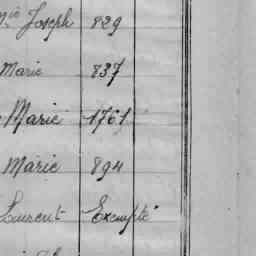 Joseph 829
Marie 837
Marie 1761
Marie 894
Laurent Exempté